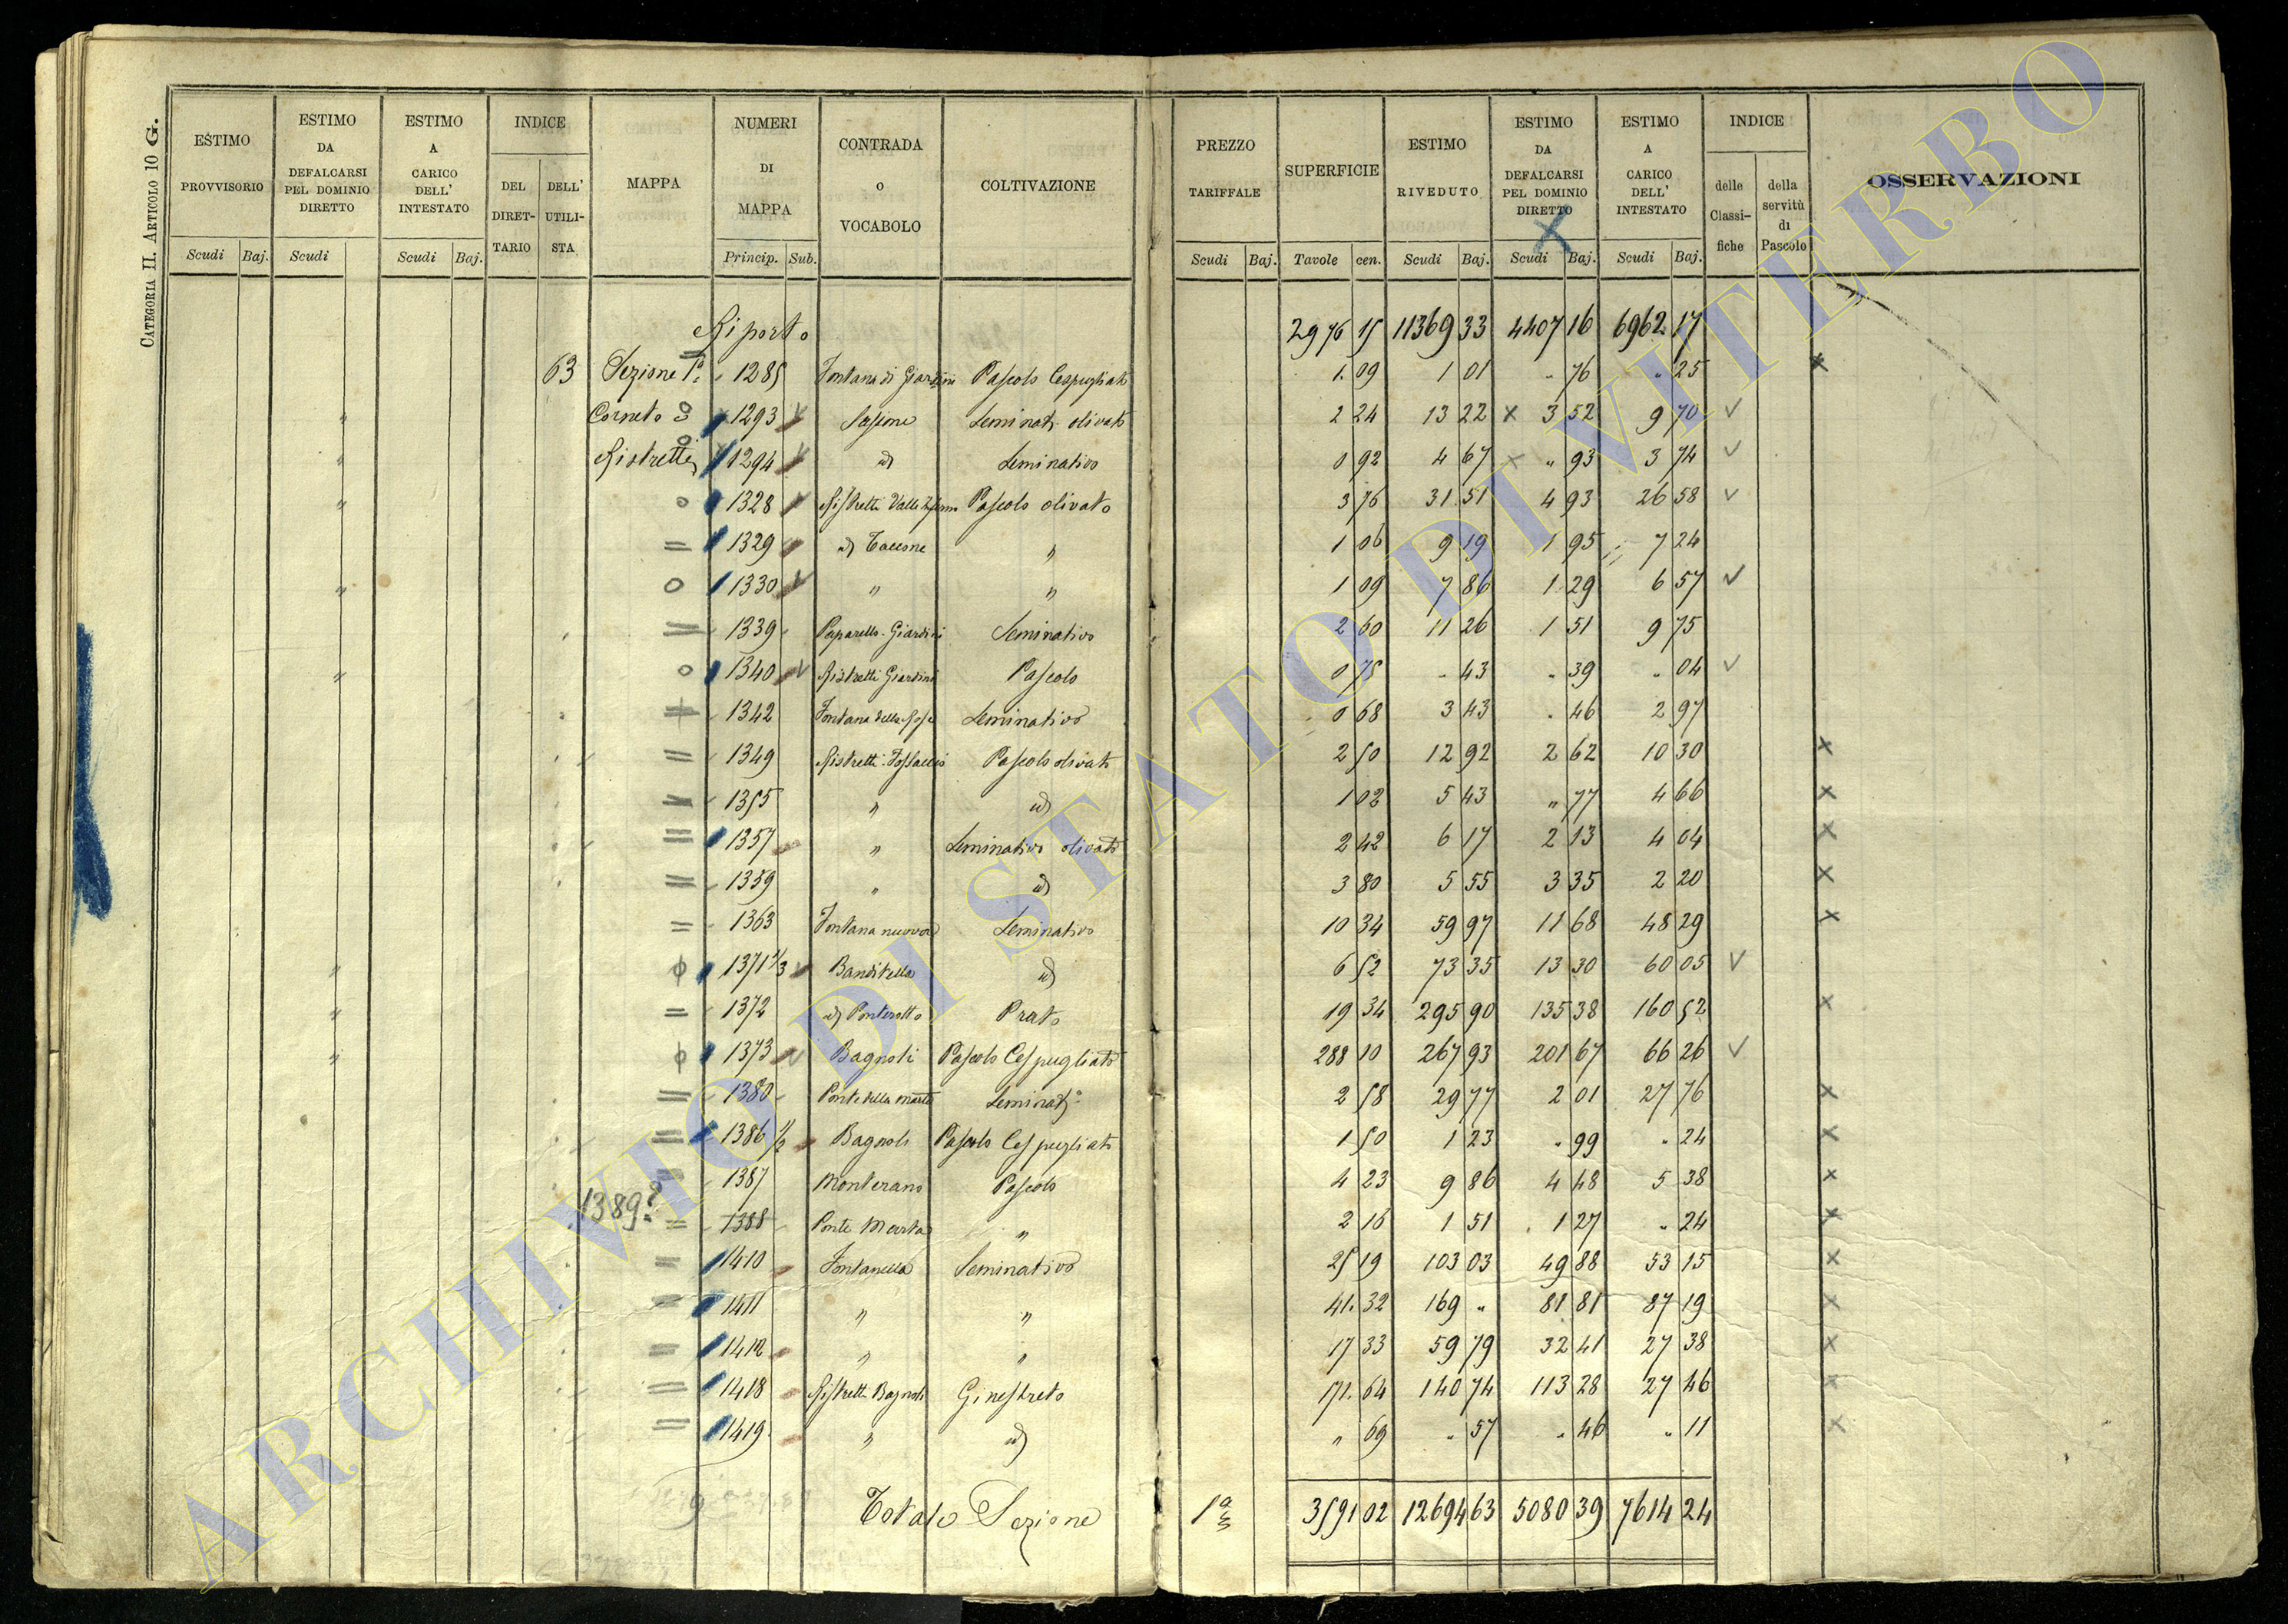 CATEGORIA II. ARTICOLO 10 G.
ESTIMO PROVVISORIO Scudi Baj.
ESTIMO DA DEFALCARSI PEL DOMINIO DIRETTO Scudi
ESTIMO A CARICO DELL' INTESTATO Scudi Baj.
INDICE DEL DIRET-TARIO DELL' UTILI-STA
MAPPA
NUMERI DI MAPPA Princip. Sub.
CONTRADA O VOCABOLO
COLTIVAZIONE
PREZZO TARIFFALE Scudi Baj.
SUPERFICIE Tavole cen.
ESTIMO RIVEDUTO Scudi Baj.
ESTIMO DA DEFALCARSI PEL DOMINIO DIRETTO Scudi Baj.
ESTIMO A CARICO DELL' INTESTATO Scudi Baj.
INDICE delle Classi-fiche della servitù di Pascolo
OSSERVAZIONI
Riporto 2976 15 11369 33 4407 16 6962 17
63 Sezione 1ª 1285 Fontana di Giardini Pascolo Cespugliato 1. 09 1 01 " 76 " 25 x
Corneto " 1293 Sassone Seminato olivato 2 24 13 22 x 3 52 9 70
Ristretti " 1294 id Seminativo 0 92 4 67 x " 93 3 74
" 1328 Ristretti Valle Pascolo olivato 3 76 31 51 4 93 26 58
1329 id Taccone " 1 06 9 19 1 95 7 24
" 1330 " " 1 09 7 86 1 29 6 57
1339 Paparello Giardini Seminativo 2 60 11 26 1 51 9 75
" 1340 Ristretti Giardini Pascolo 0 75 " 43 " 39 " 04
1342 Fontana della Seminativo 0 68 3 43 " 46 2 97
1349 Ristretti Fossaccio Pascolo olivato 2 50 12 92 2 62 10 30 x
1355 " id 1 02 5 43 " 77 4 66 x
1357 " Seminativo olivato 2 42 6 17 2 13 4 04 x
1359 " id 3 80 5 55 3 35 2 20 x
1363 Fontana nuova Seminativo 10 34 59 97 11 68 48 29 x
" 1371 Banditella id 6 52 73 35 13 30 60 05
" 1372 id Ponterotto Prato 19 34 295 90 135 38 160 52 x
" 1373 Bagnoli Pascolo Cespugliato 288 10 267 93 201 67 66 26
1380 Ponte della Marta Seminatº 2 58 29 77 2 01 27 76 x
1386 1/2 Bagnoli Pascolo Cespugliato 1 50 1 23 " 99 " 24 x
1387 Monterano Pascolo 4 23 9 86 4 48 5 38 x
1389? 1388 Ponte Marta " 2 16 1 51 1 27 " 24 x
1410 Fontanella Seminativo 25 19 103 03 49 88 53 15 x
1411 " " 41. 32 169 " 81 81 87 19 x
1412 " " 17 33 59 79 32 41 27 38 x
1418 Ristretti Bagnoli Ginestreto 171. 64 140 74 113 28 27 46 x
1419 " id " 69 " 57 " 46 " 11 x
Totale Sezione 1ª 3591 02 12694 63 5080 39 7614 24
ARCHIVIO DI STATO DI VITERBO